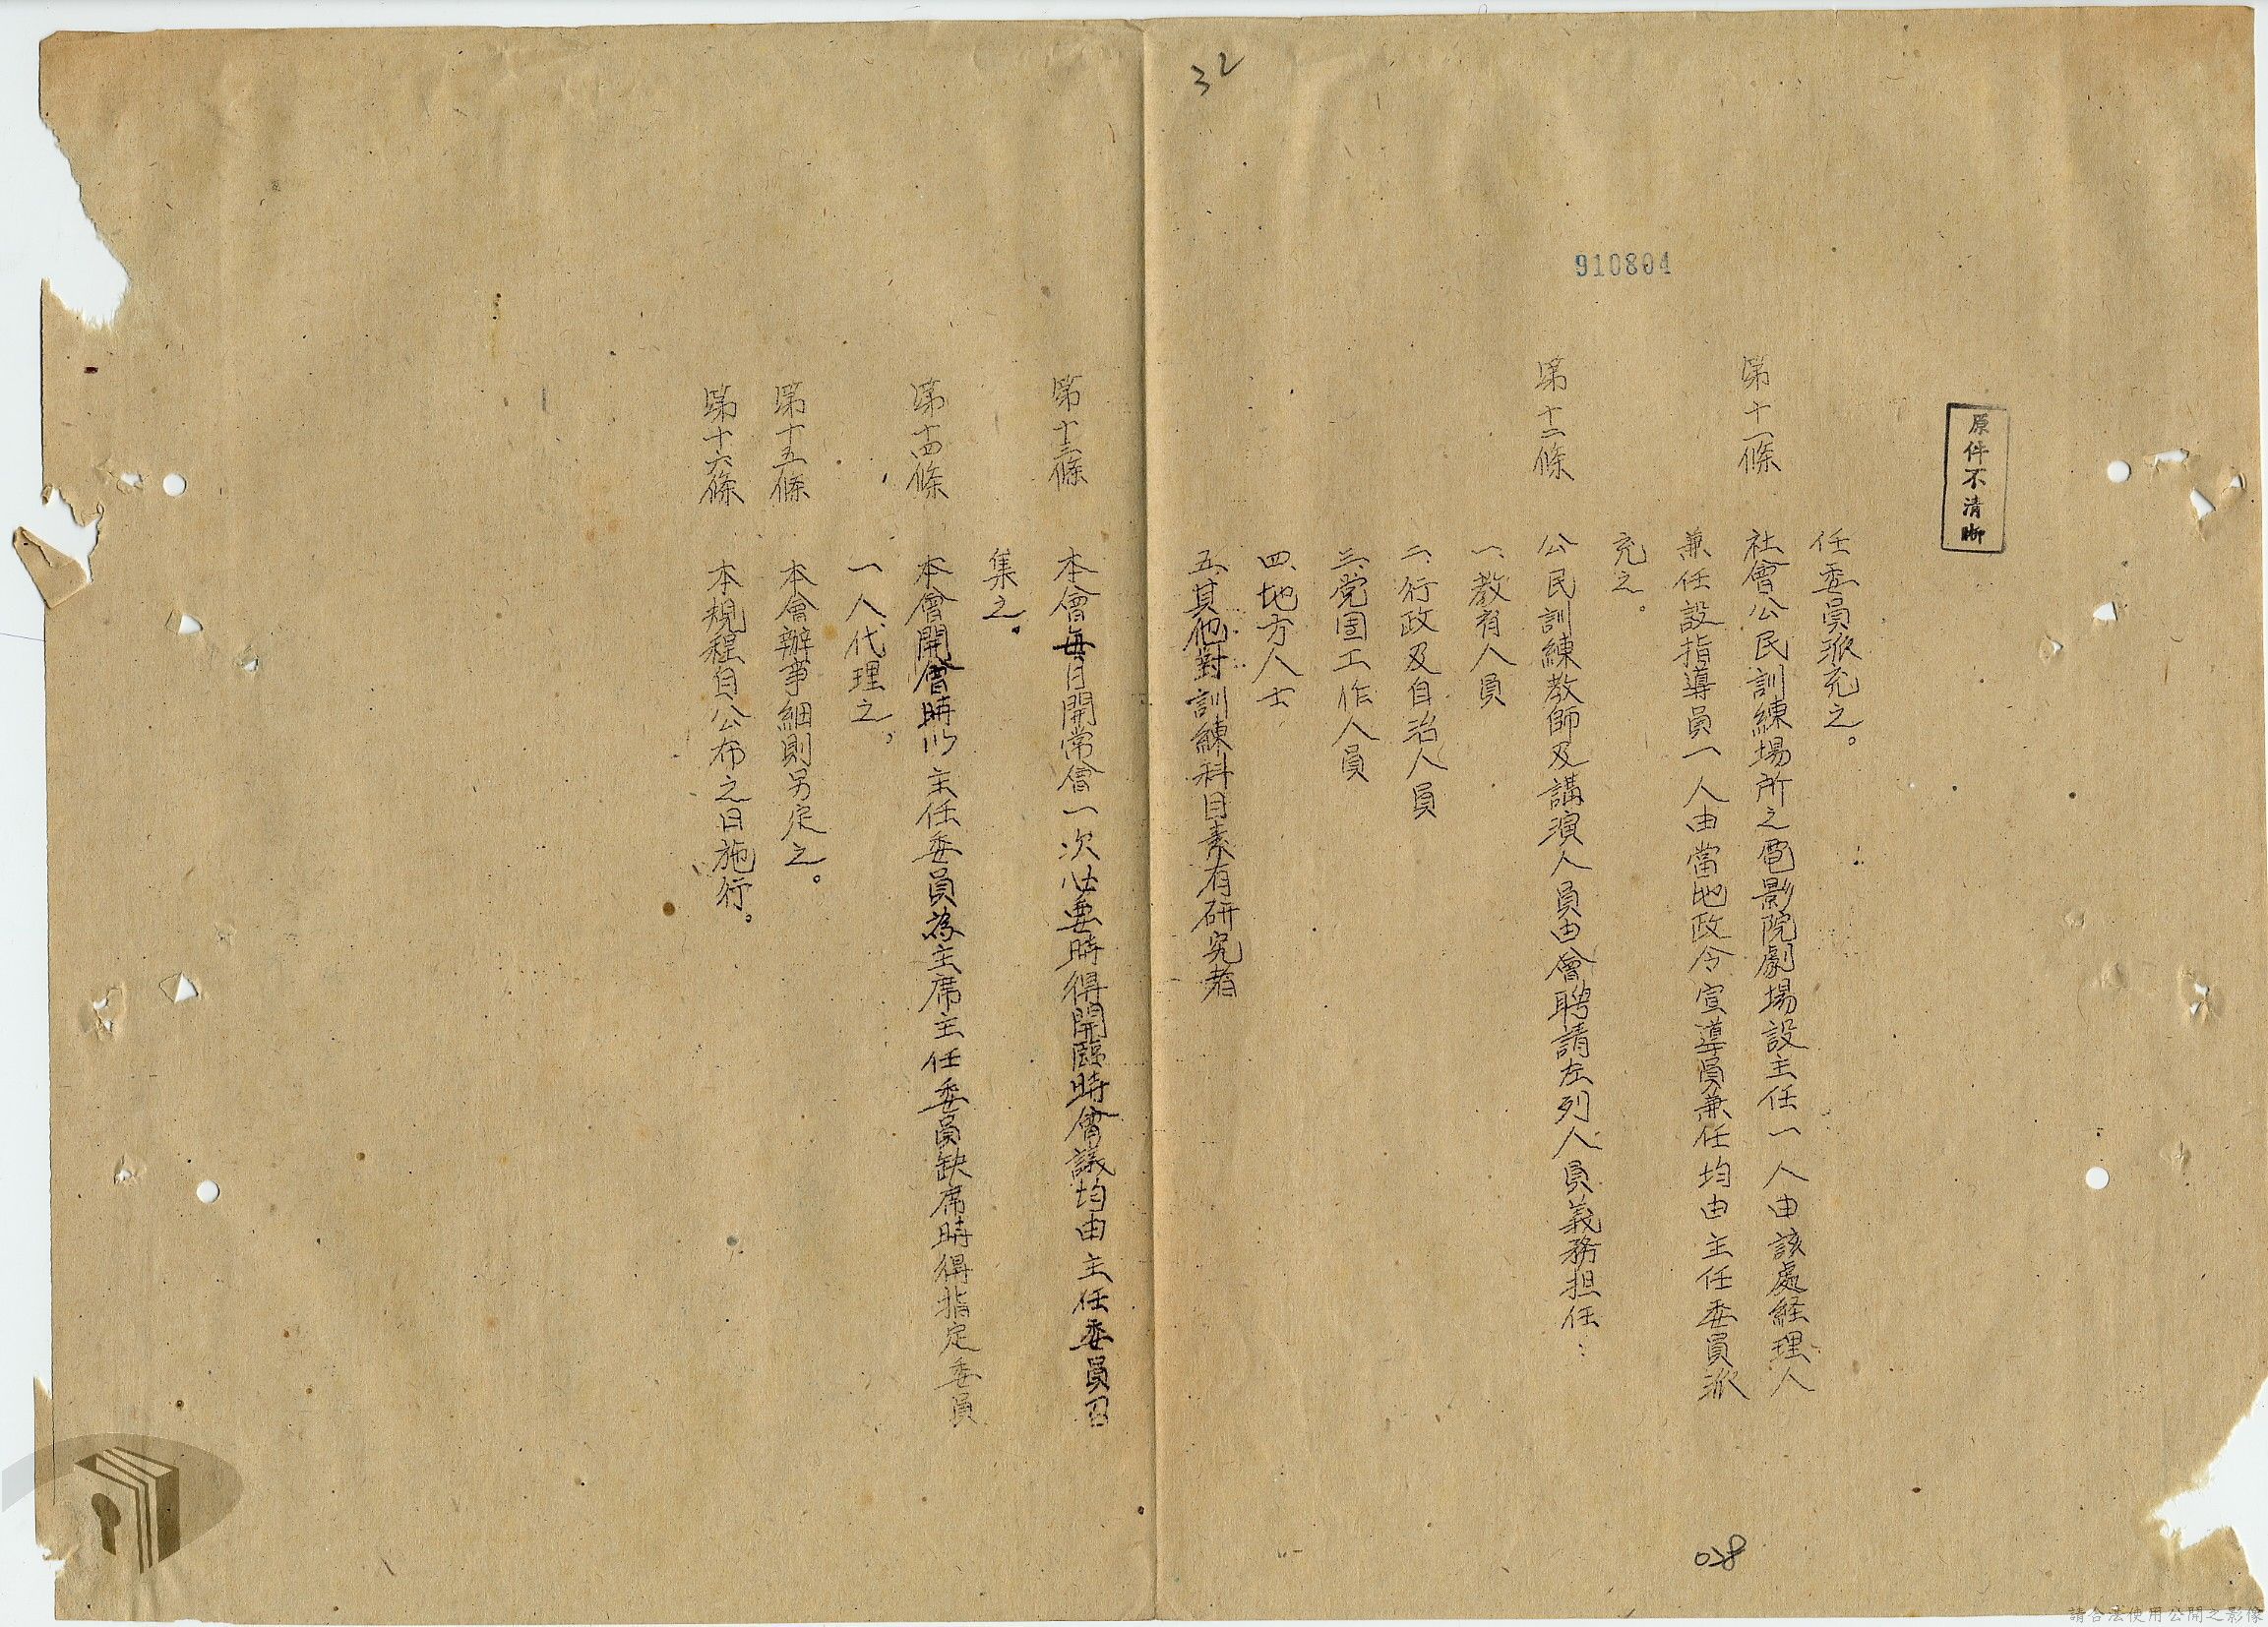 32
910804
原件不清晰
任委員派充之。
第十一條 社會公民訓練場所之電影院劇場設主任一人由該處経理人
兼任設指導員一人由當地政令宣導員兼任均由主任委員派
充之。
第十二條 公民訓練教師及講演人員由會聘請左列人員義務担任：
一、教育人員
二、行政及自治人員
三、党団工作人員
四、地方人士
五、其他對訓練科目素有研究者
第十三條 本會每月開常會一次必要時得開臨時會議均由主任委員召
集之。
第十四條 本會開會時以主任委員為主席主任委員缺席時得指定委員
一人代理之。
第十五條 本會辦事細則另定之。
第十六條 本規程自公布之日施行。
028
請合法使用公開之影像